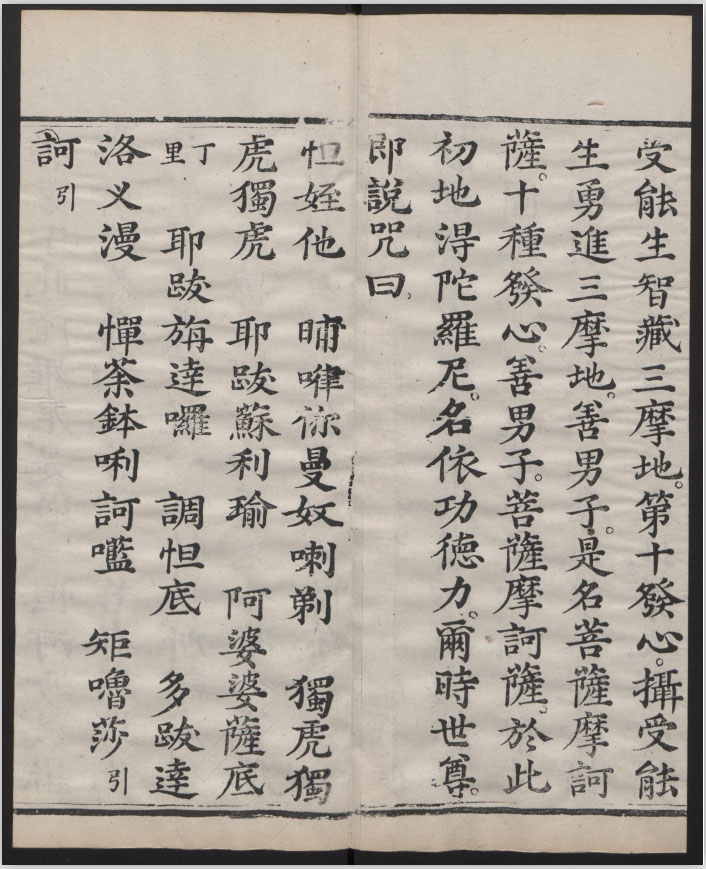 受能生智藏三摩地。第十發心。攝受能
生勇進三摩地。善男子。是名菩薩摩訶
薩。十種發心。善男子。菩薩摩訶薩。於此
初地得陀羅尼。名依功德力。爾時世尊。
即說咒曰。
怛姪他　晡㗚你曼奴喇剃　獨虎獨
虎獨虎　耶跋蘇利瑜　阿婆婆薩底
丁里　耶跋旃達囉　調怛底　多跋達
洛义漫　憚荼鉢唎訶嚂　矩嚕莎引
訶引